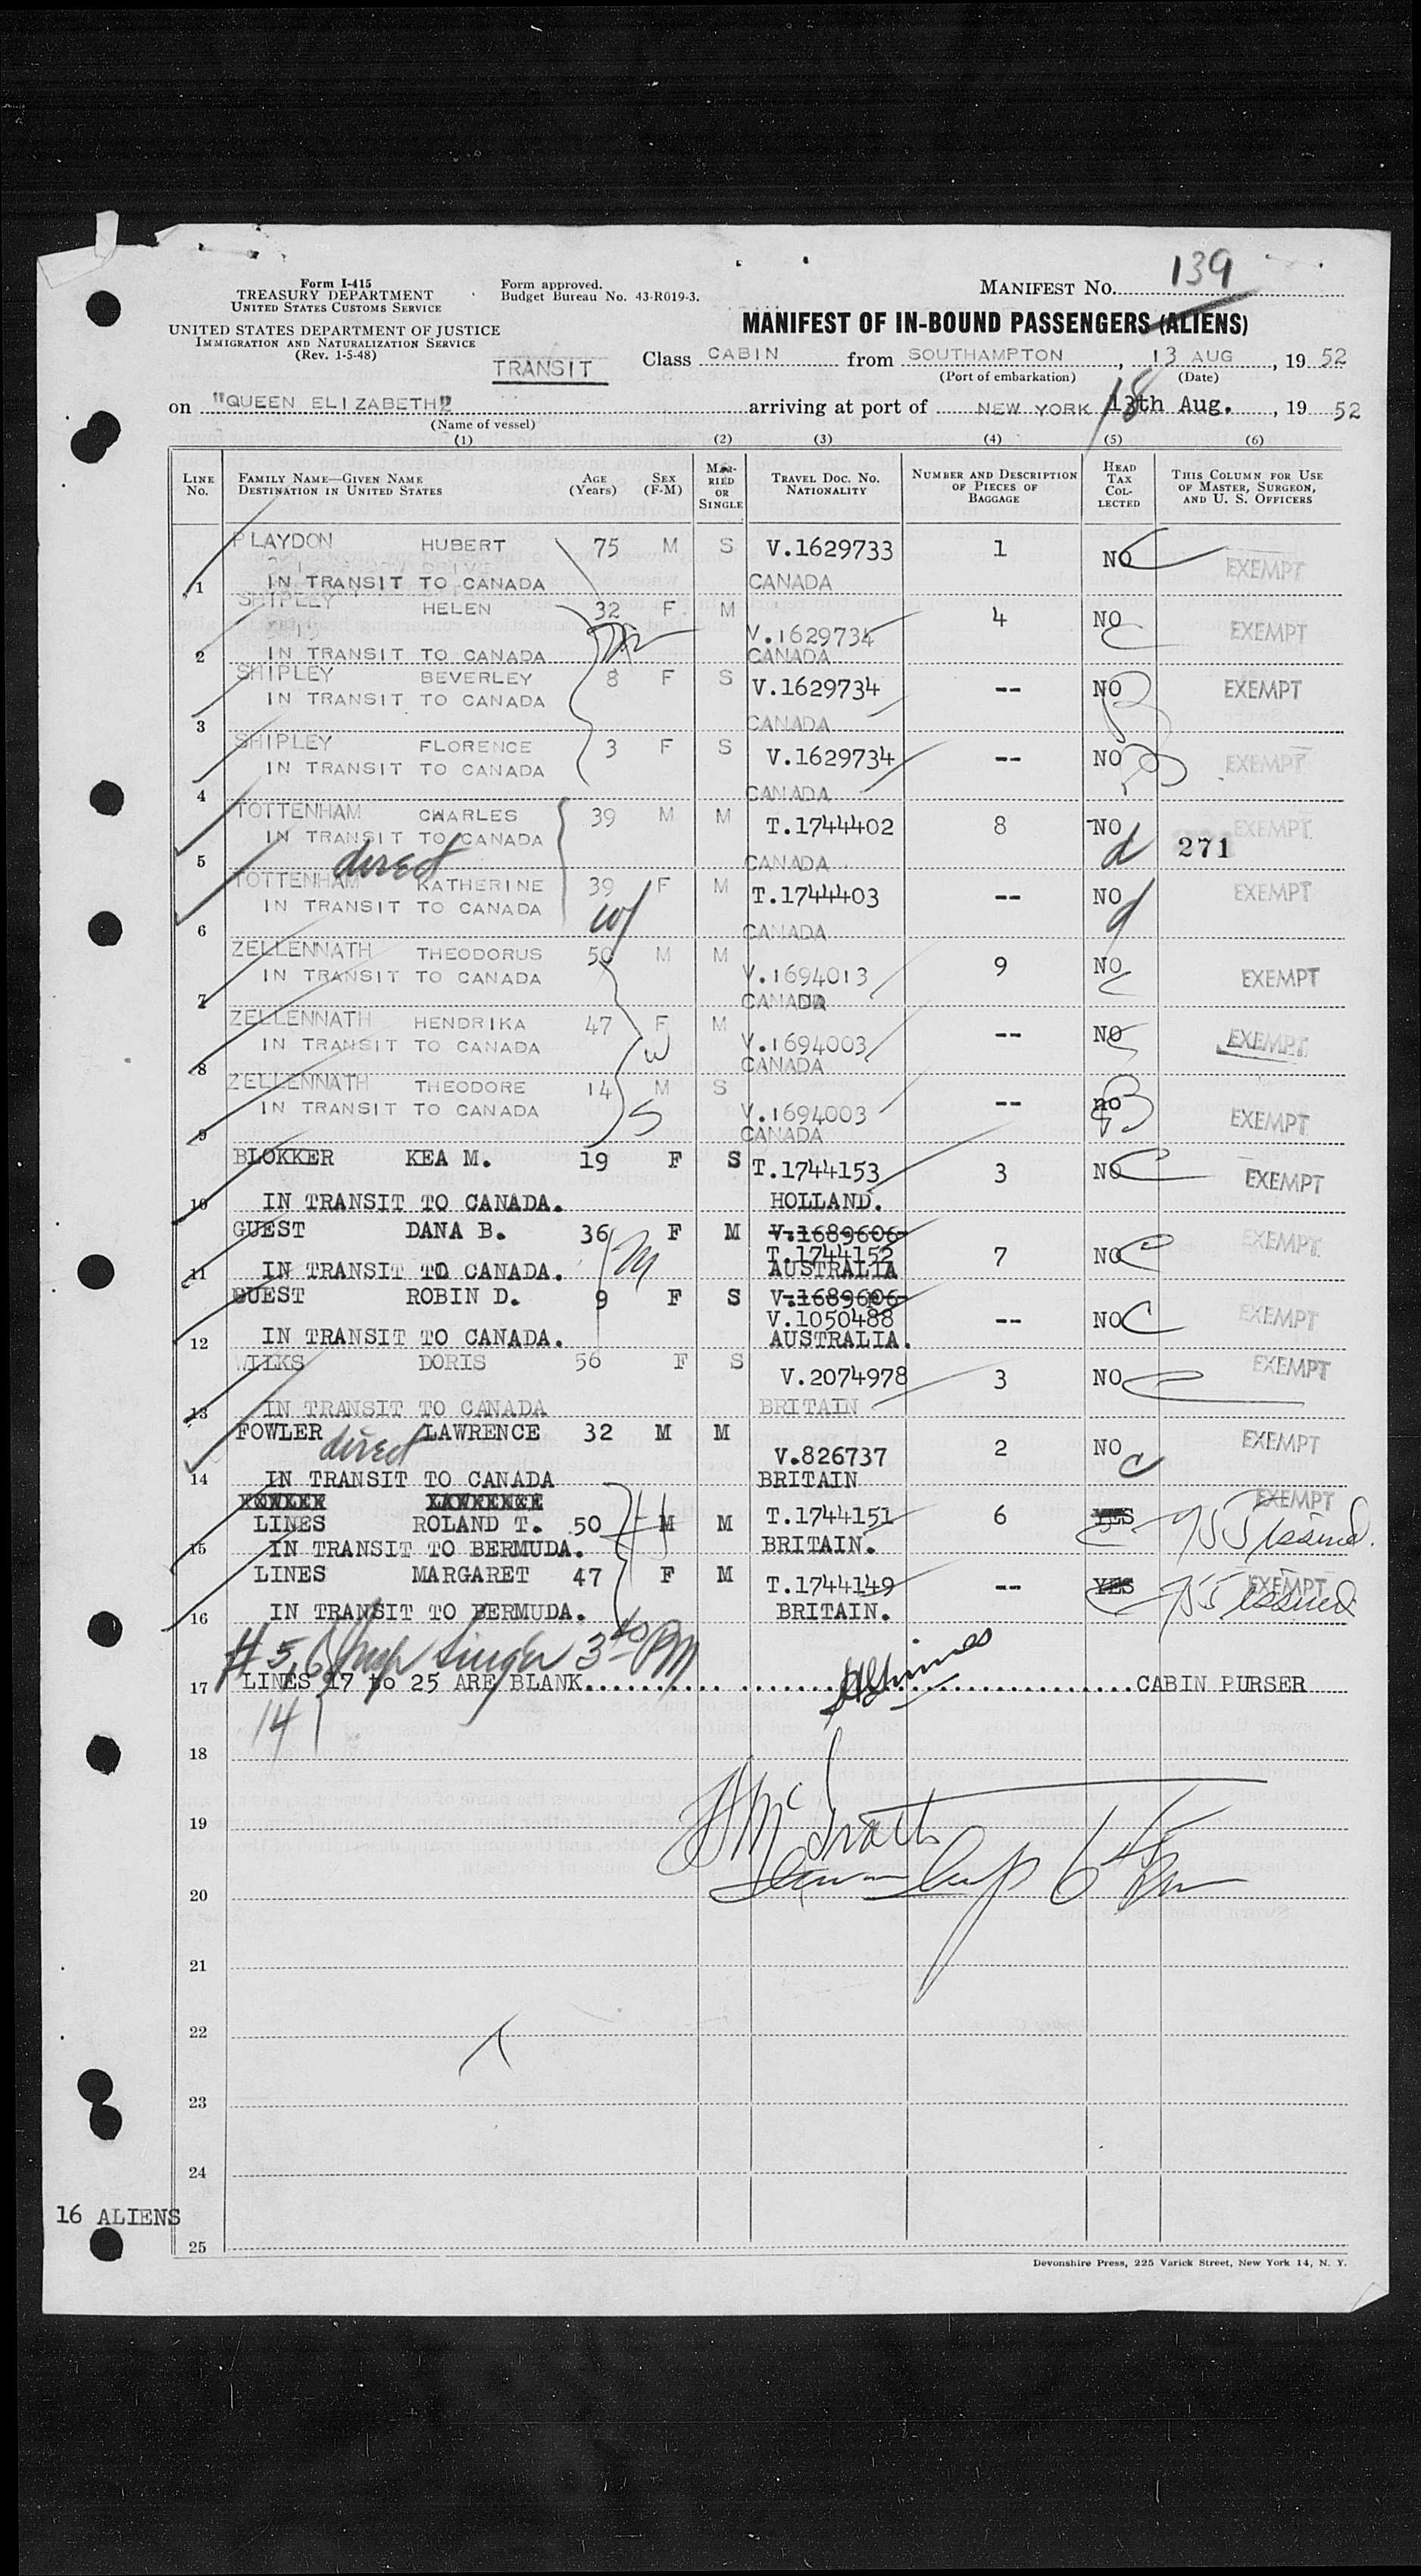 139
Form I-415
TREASURY DEPARTMENT
UNITED STATES CUSTOMS SERVICE
UNITED STATES DEPARTMENT OF JUSTICE
IMMIGRATION AND NATURALIZATION SERVICE
(Rev. 1-5-48)
Form approved.
Budget Bureau No. 43-R019-3.
MANIFEST No.
MANIFEST OF IN-BOUND PASSENGERS (ALIENS)
TRANSIT
Class CABIN from SOUTHAMPTON, 13 AUG, 19 52
(Port of embarkation) (Date)
on "QUEEN ELIZABETH" arriving at port of NEW YORK 18th Aug., 19 52
(Name of vessel)
(1) (2) (3) (4) (5) (6)
LINE No. FAMILY NAME—GIVEN NAME DESTINATION IN UNITED STATES AGE (Years) SEX (F-M) MARRIED OR SINGLE TRAVEL DOC. NO. NATIONALITY NUMBER AND DESCRIPTION OF PIECES OF BAGGAGE HEAD TAX COLLECTED THIS COLUMN FOR USE OF MASTER, SURGEON, AND U. S. OFFICERS
PLAYDON HUBERT 75 M S V.1629733 1 NO EXEMPT
1 IN TRANSIT TO CANADA CANADA
SHIPLEY HELEN 32 F M V.1629734 4 NO EXEMPT
2 IN TRANSIT TO CANADA CANADA
SHIPLEY BEVERLEY 8 F S V.1629734 -- NO EXEMPT
IN TRANSIT TO CANADA
3 CANADA
SHIPLEY FLORENCE 3 F S V.1629734 -- NO EXEMPT
IN TRANSIT TO CANADA
4 CANADA
TOTTENHAM CHARLES 39 M M T.1744402 8 NO EXEMPT
IN TRANSIT TO CANADA 271
5 direct CANADA
TOTTENHAM KATHERINE 39 F M T.1744403 -- NO EXEMPT
IN TRANSIT TO CANADA
6 CANADA
ZELLENNATH THEODORUS 50 M M V.1694013 9 NO EXEMPT
IN TRANSIT TO CANADA
7 CANADA
ZELLENNATH HENDRIKA 47 F M V.1694003 -- NO EXEMPT
IN TRANSIT TO CANADA
8 CANADA
ZELLENNATH THEODORE 14 M S V.1694003 -- no EXEMPT
IN TRANSIT TO CANADA
9 CANADA
BLOKKER KEA M. 19 F S T.1744153 3 NO EXEMPT
10 IN TRANSIT TO CANADA. HOLLAND.
GUEST DANA B. 36 F M V.1689606 T.1744152 7 NO EXEMPT
11 IN TRANSIT TO CANADA. AUSTRALIA
GUEST ROBIN D. 9 F S V.1689606 V.1050488 -- NO EXEMPT
12 IN TRANSIT TO CANADA. AUSTRALIA.
WILKS DORIS 56 F S V.2074978 3 NO EXEMPT
13 IN TRANSIT TO CANADA BRITAIN
FOWLER LAWRENCE 32 M M V.826737 2 NO EXEMPT
direct
14 IN TRANSIT TO CANADA BRITAIN
FOWLER LAWRENCE
LINES ROLAND T. 50 M M T.1744151 6 YES EXEMPT issued.
15 IN TRANSIT TO BERMUDA. BRITAIN.
LINES MARGARET 47 F M T.1744149 -- YES EXEMPT issued
16 IN TRANSIT TO BERMUDA. BRITAIN.
# 5, 6
17 LINES 17 to 25 ARE BLANK. CABIN PURSER
14
18
19
20
21
22
23
24
16 ALIENS
25
Devonshire Press, 225 Varick Street, New York 14, N. Y.